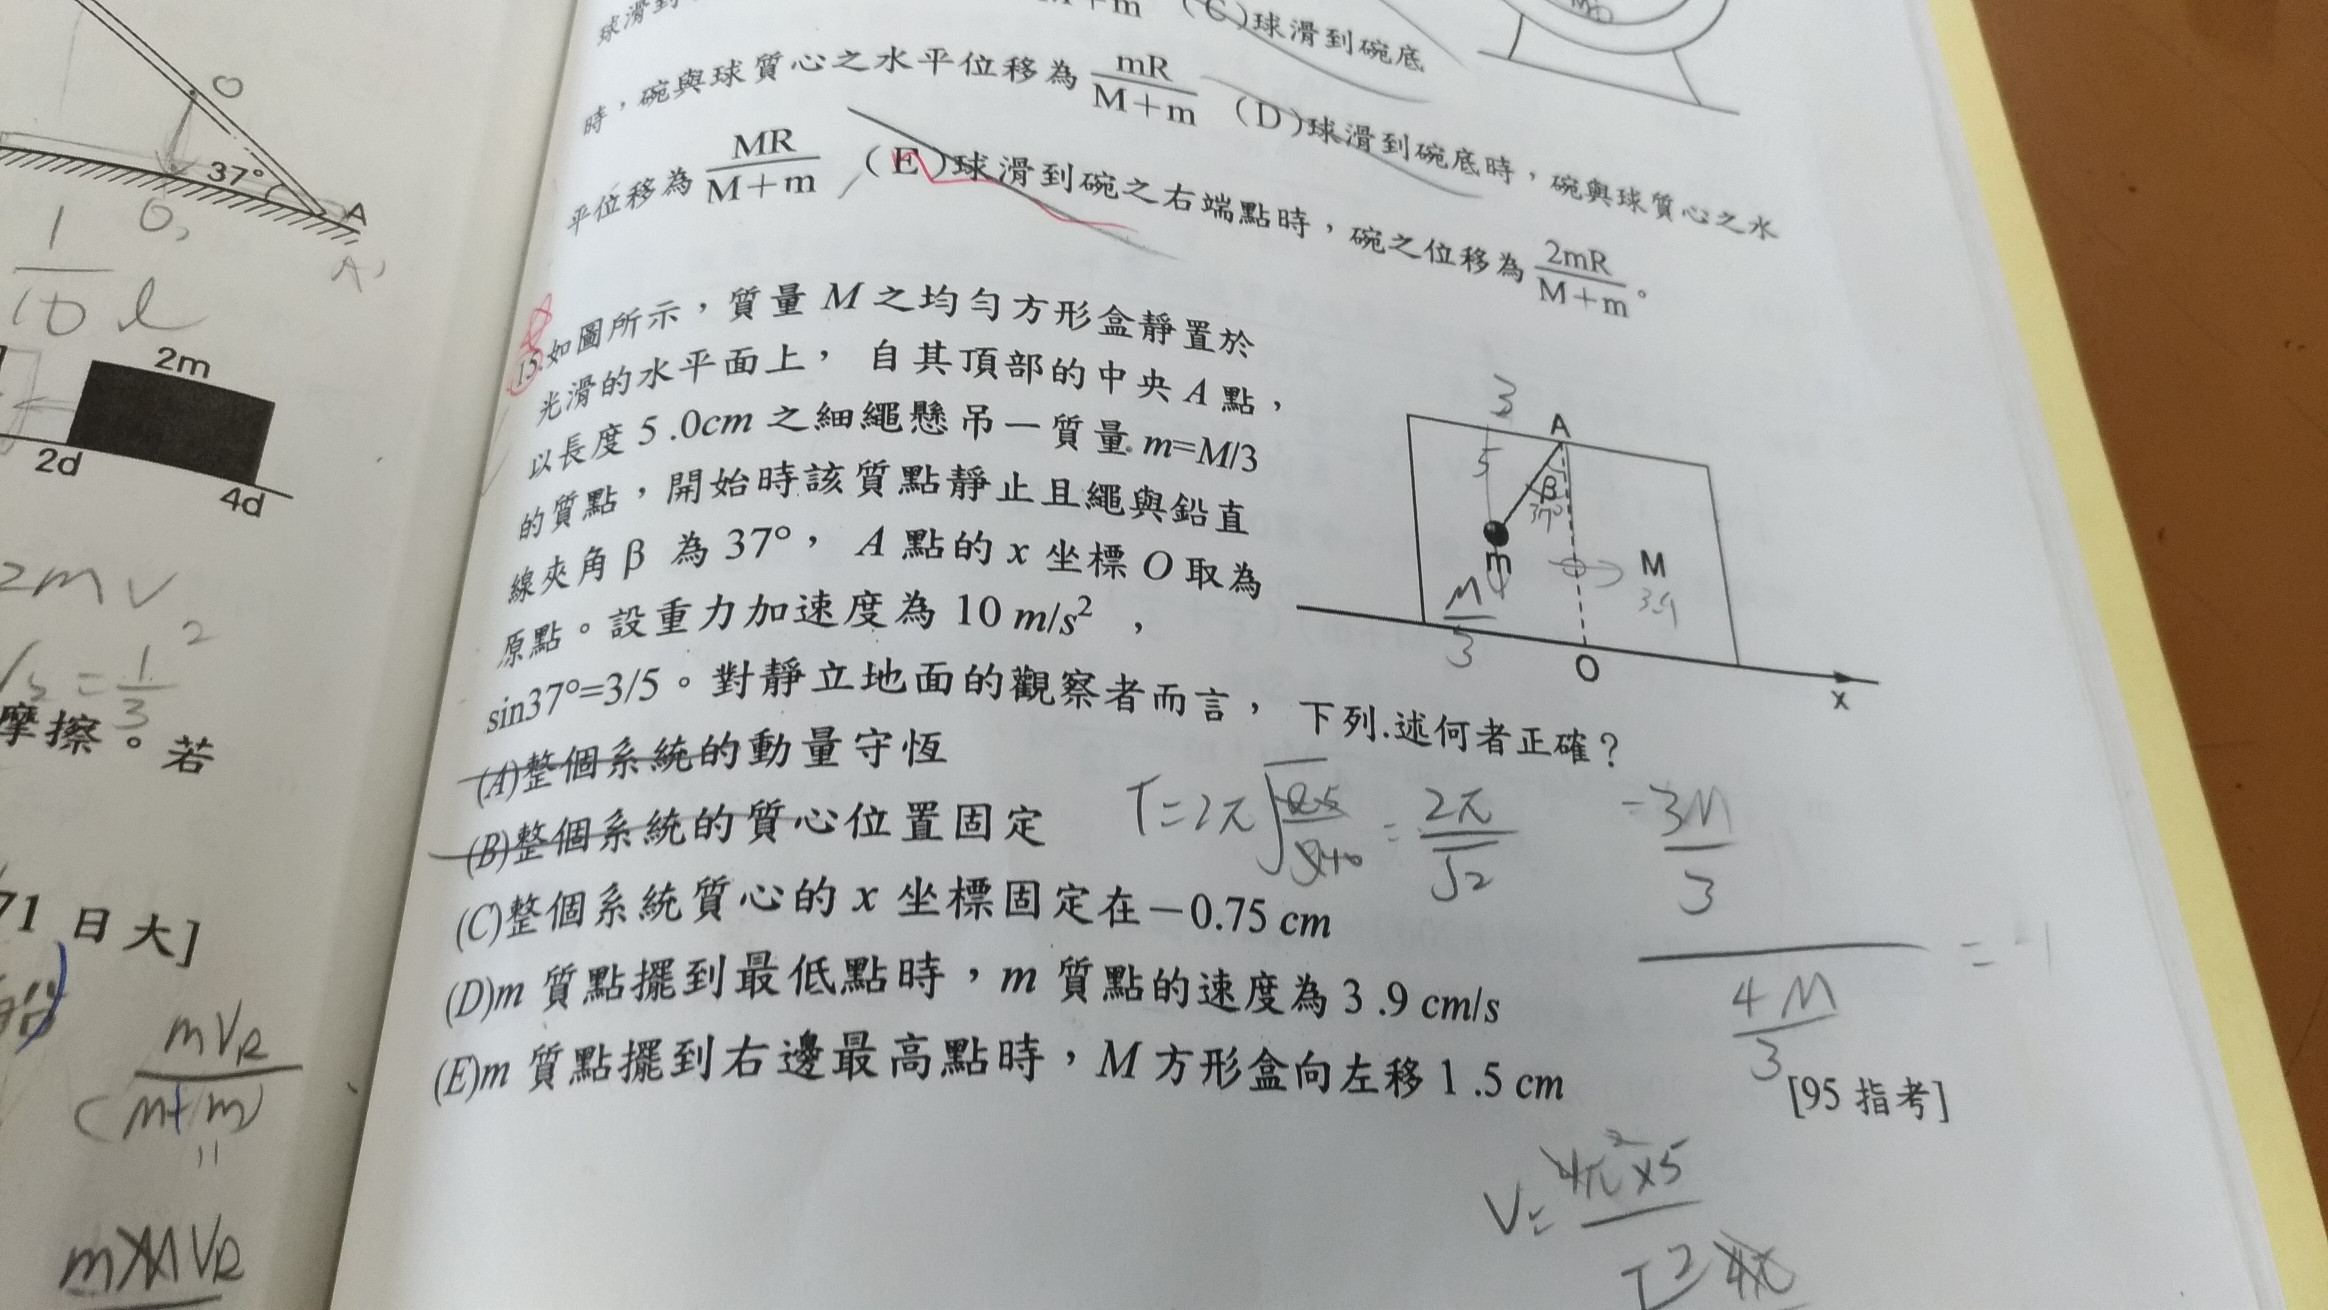 球滑到
M+m (C)球滑到碗底
時，碗與球質心之水平位移為 mR/M+m (D)球滑到碗底時，碗與球質心之水
平位移為 MR/M+m (E)球滑到碗之右端點時，碗之位移為 2mR/M+m。
15.如圖所示，質量 M 之均勻方形盒靜置於
光滑的水平面上， 自其頂部的中央 A 點，
以長度 5.0cm 之細繩懸吊一質量 m=M/3
的質點，開始時該質點靜止且繩與鉛直
線夾角 β 為 37°， A 點的 x 坐標 O 取為
原點。設重力加速度為 10 m/s²，
sin37°=3/5。對靜立地面的觀察者而言， 下列.述何者正確？
(A)整個系統的動量守恆
(B)整個系統的質心位置固定
(C)整個系統質心的 x 坐標固定在－0.75 cm
(D)m 質點擺到最低點時，m 質點的速度為 3.9 cm/s
(E)m 質點擺到右邊最高點時，M 方形盒向左移 1.5 cm
[95 指考]
3
A
5
β
37°
m
M
3.9
M/3
O
x
T=2π
= 2π/√2
-3M/3
4M/3
= -1
V= 4π²×5
O
37°
A
O,
A'
1/10 l
2m
2d
4d
2mV
= 1/3
2
摩擦。若
71 日大]
mVR
(M+m)
=
mMVR